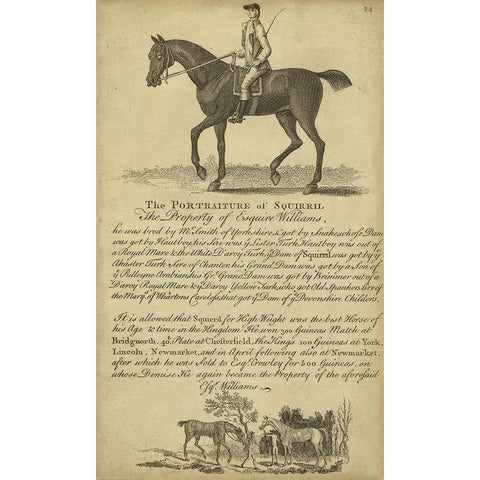 24
The PORTRAITURE of SQUIRRIL
The Property of Esquire Williams.
he was bred by Mr. Smith of Yorkshire & got by Snake whose Dam
was got by Hautboy, his Sire was ye Lister Turk, Hautboy was out of
a Royal Mare & the White Darcy Turk, ye Dam of Squirril was got by ye
Akaster Turk Sire of Chanter, his Grand Dam was got by a Son of
ye Pulleyne Arabian, his Gr. Grand Dam was got by Brimmer out of a
Darcy Royal Mare & ye Darcy Yellow Turk, who got Old Spanker, Sire of
the Marqs. of Whartons Careless, that got ye Dam of ye Devonshire Childers.
It is allowed that Squirril for High Weight was the best Horse of
his Age & time in the Kingdom He won 300 Guineas Match at
Bridgnorth, 40 Plate at Chesterfield, the Kings 100 Guineas at York,
Lincoln, Newmarket, and in April following also at Newmarket,
after which he was Sold to Esqr. Crowley for 500 Guineas, on
whose Demise He again became the Property of the aforesaid
Esqr. Williams